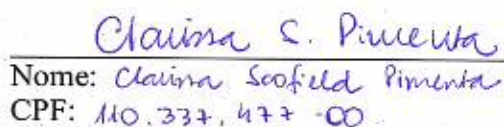 Clarissa S. Pimenta
Nome: Clarissa Scofield Pimenta
CPF: 110.337.477-00